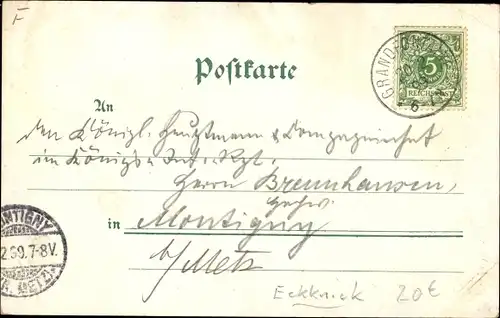 F
Postkarte
5
REICHSPOST
An
den Königl. Hauptmann & Compagniechef
im Königs Inf. Rgt.
Herrn Brennhausen,
in Montigny
b/Metz
MONTIGNY
2 99. 7-8V.
Eckknick 20€